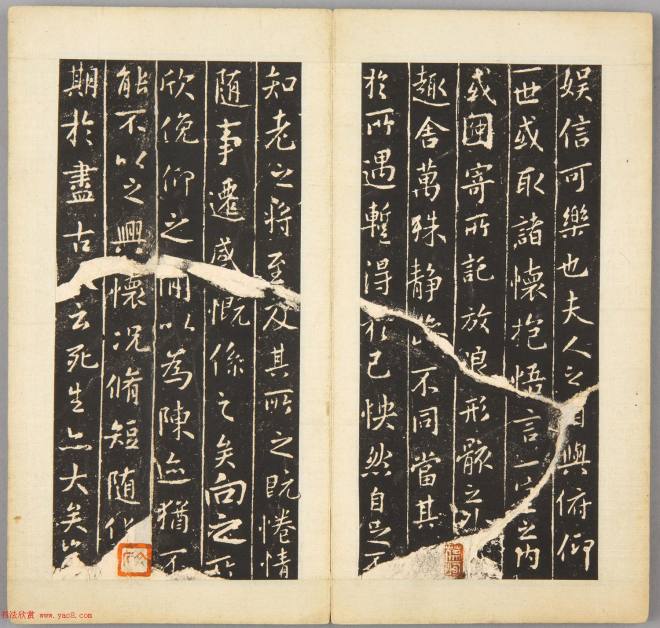 娛信可樂也夫人之相與俯仰
一世或取諸懷抱悟言一室之内
或因寄所託放浪形骸之外
趣舍萬殊静躁不同當其
於所遇蹔得於己怏然自足不
知老之將至及其所之既惓情
随事遷感慨係之矣向之所
欣俛仰之閒以為陳迹猶不
能不以之興懷况脩短随化
期於盡古人云死生亦大矣豈
书法欣赏 www.yac8.com